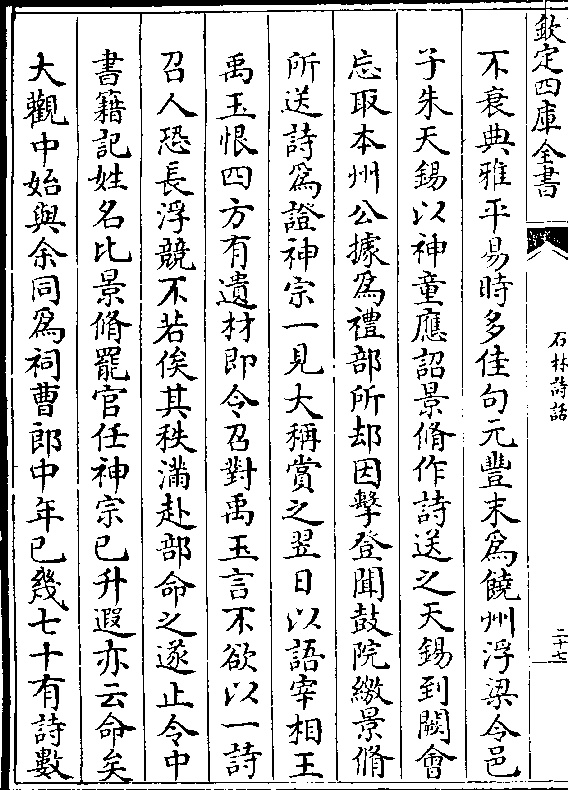 欽定四庫全書
石林詩話
二十七
不衰典雅平易時多佳句元豐末為饒州浮梁令邑
子朱天錫以神童應詔景脩作詩送之天錫到闕會
忘取本州公據為禮部所却因擊登聞鼓院繳景脩
所送詩為證神宗一見大稱賞之翌日以語宰相王
禹玉恨四方有遺材即令召對禹玉言不欲以一詩
召人恐長浮競不若俟其秩滿赴部命之遂止令中
書籍記姓名比景脩罷官任神宗已升遐亦云命矣
大觀中始與余同為祠曹郎中年已幾七十有詩數